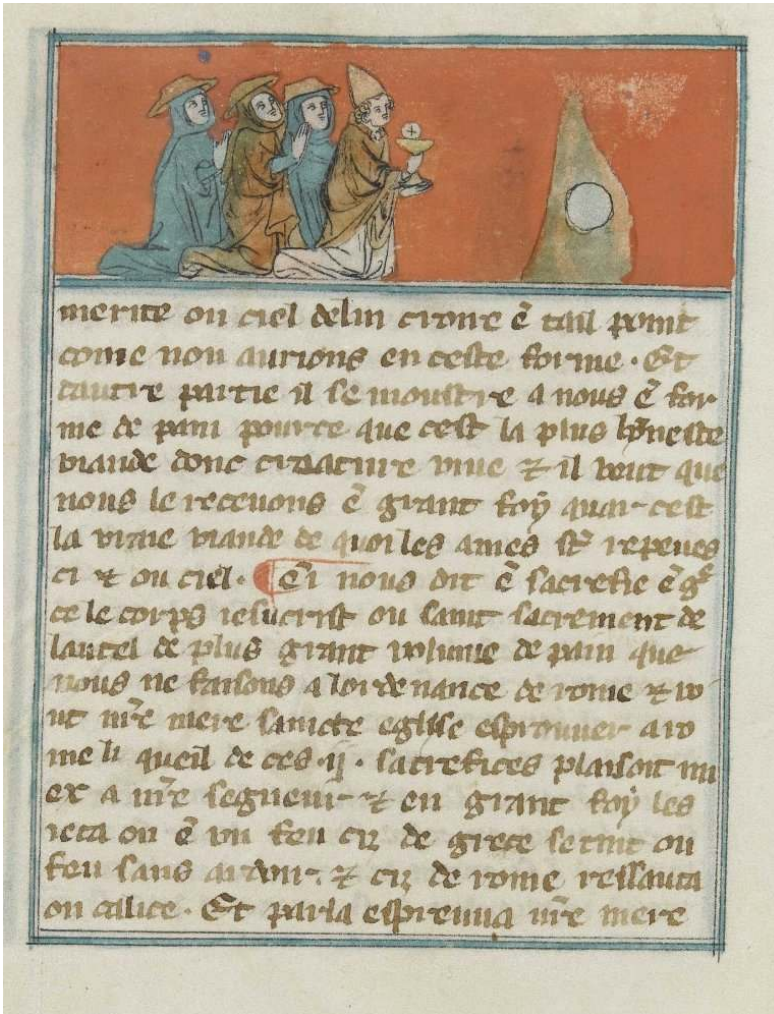 merite ou ciel de lui croire ē tail point
come nou aurions en ceste forme · Et
dautre partie il se moustre a nous ē for
me de pain pource que cest la plus honeste
viande donc creature viue ⁊ il veut que
nous le receuons ē grant foy quar cest
la vraie viande de quoi les ames sōt repeues
ci ⁊ ou ciel · ¶ nous dit ē sacrefie ē
ce le corps iesucrist ou saint sacrement de
lautel de plus grant volume de pain que
nous ne faisons a lordenance de rome ⁊ vo
ut nr̄e mere saincte eglise esprouuer a ro
me li queil de ces ·ij· sacrefices plaisoit mi
ex a nr̄e segneur ⁊ en grant foy les
ieta on ē un feu cilz de grece se tint ou
feu sans ardoir · ⁊ cilz de rome ressauta
ou calice · Et par la espreuua nr̄e mere